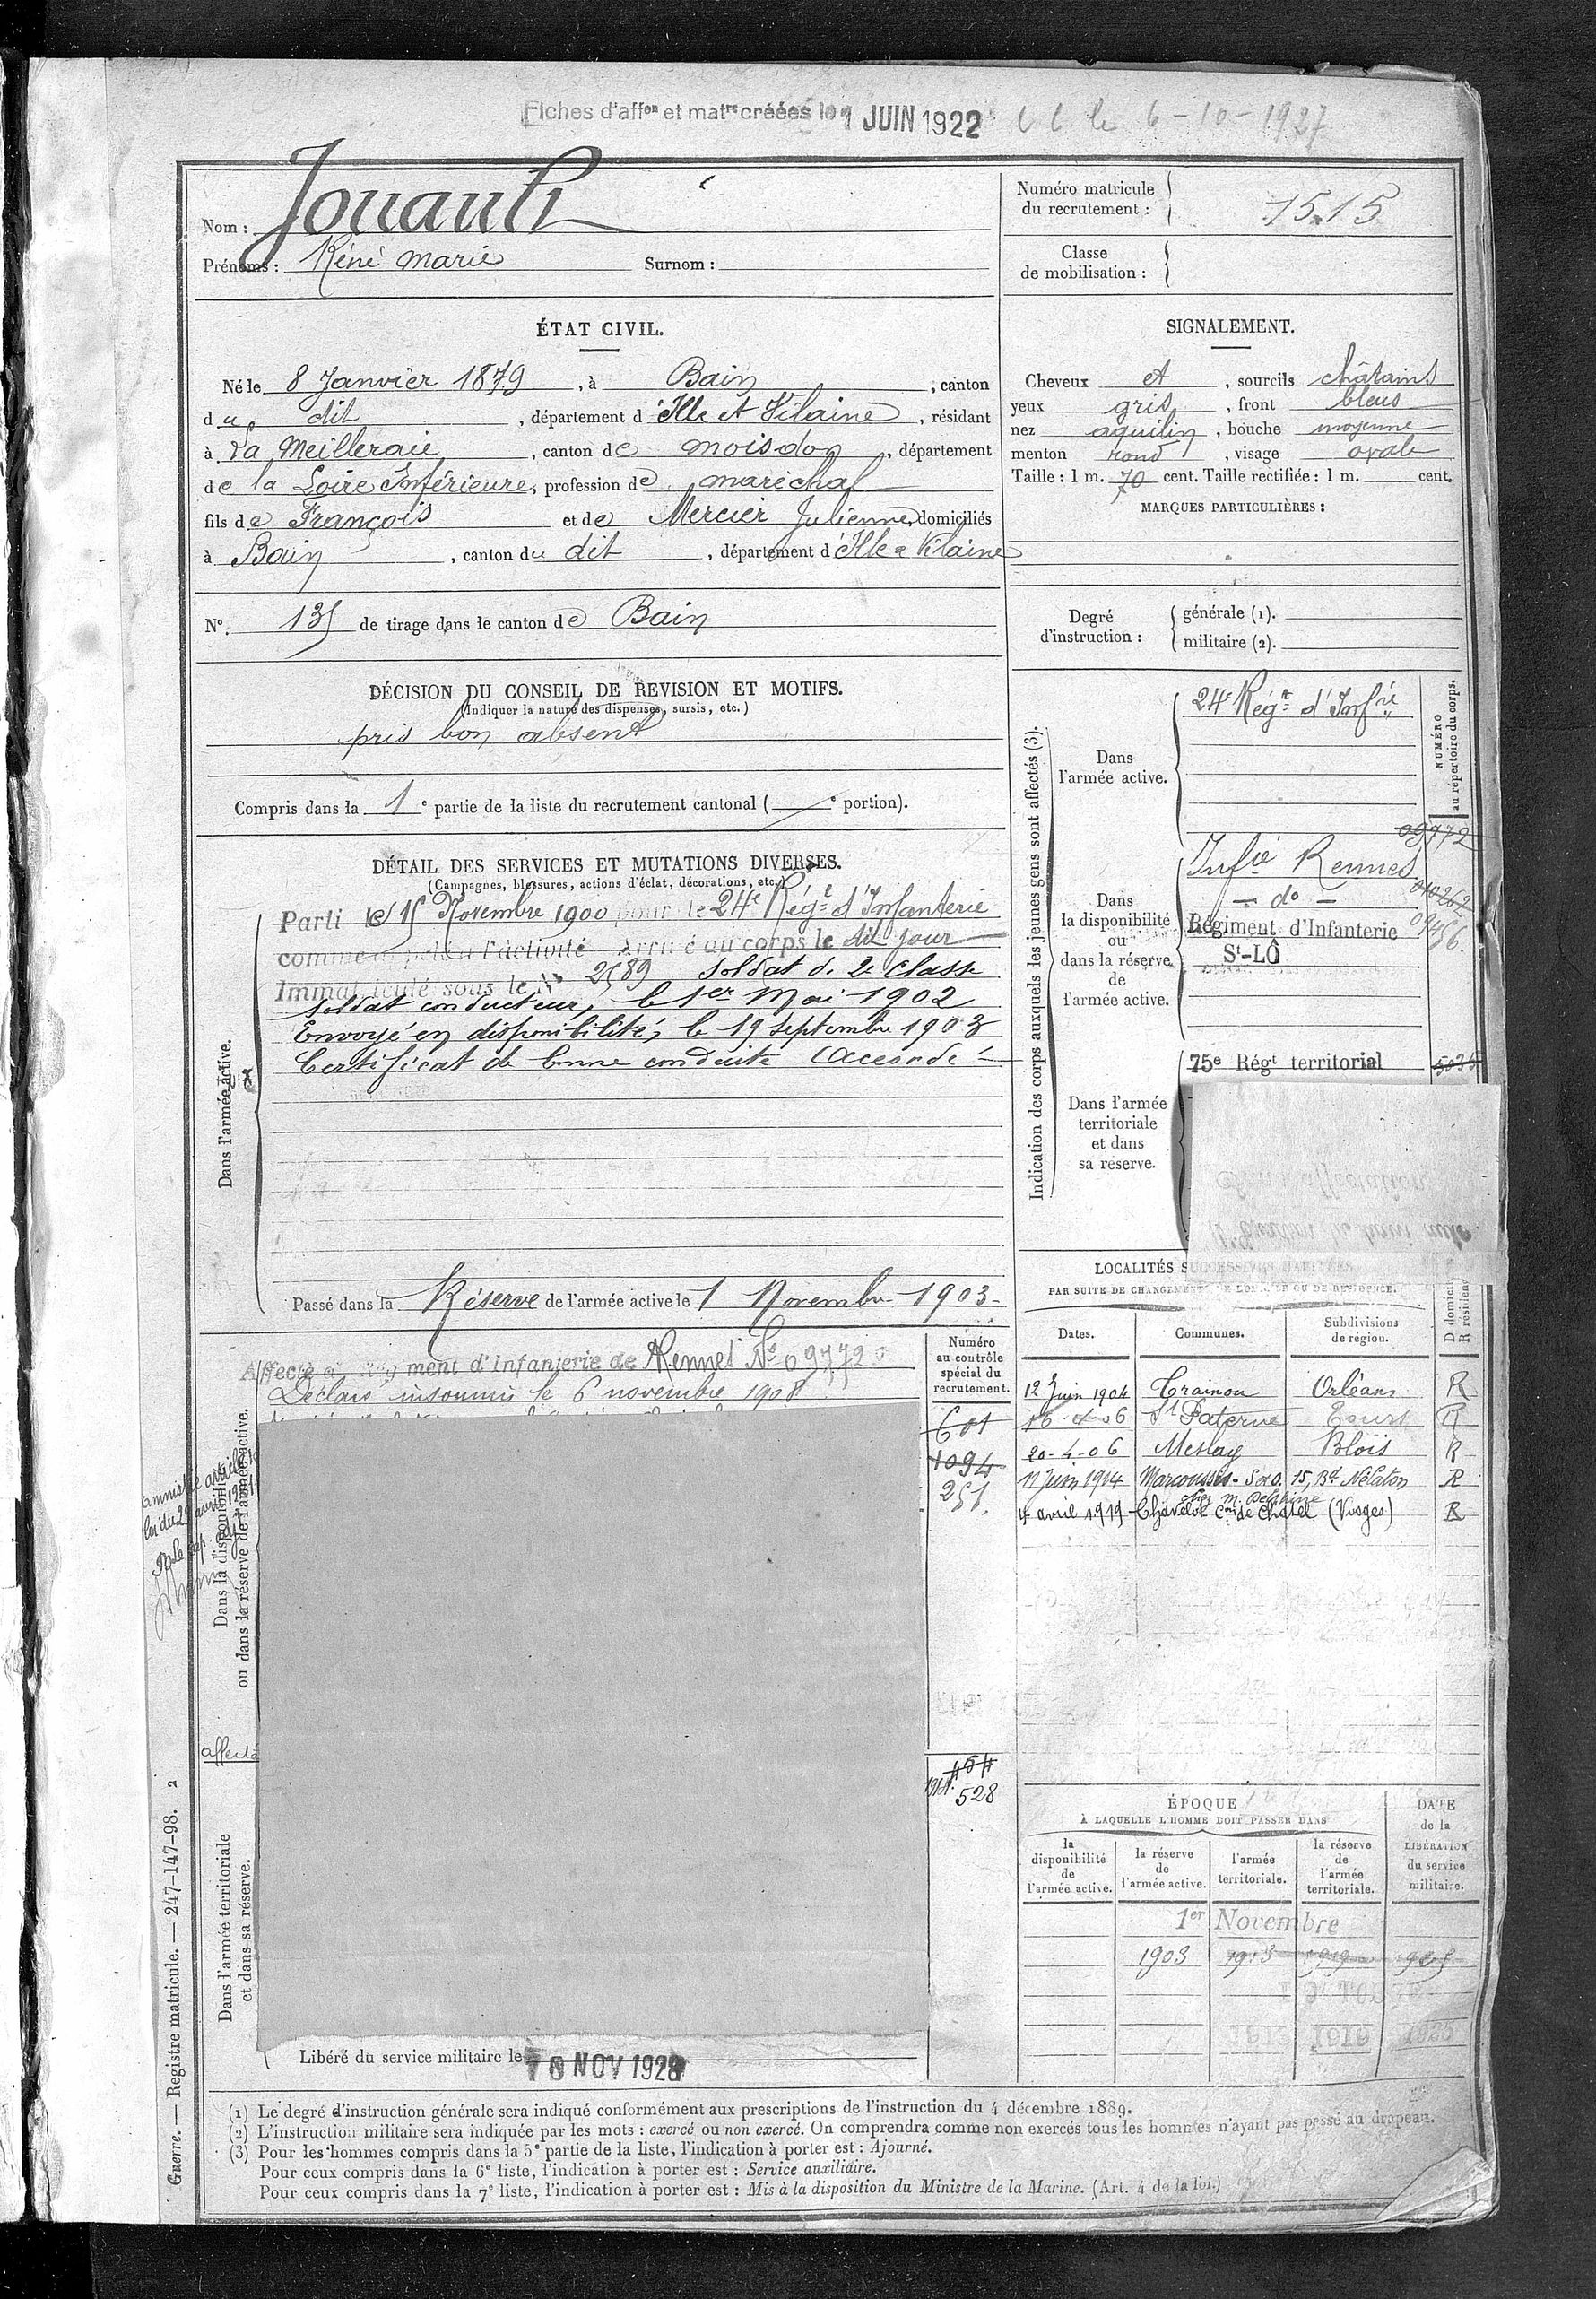 Fiches d'affon et matre créées le 1 JUIN 1922 le 6-10-1927
Nom : Jouault
Prénoms : Réné Marie Surnom :
Numéro matricule du recrutement : 1515
Classe de mobilisation :
ÉTAT CIVIL.
Né le 8 Janvier 1879, à Bain, canton
du dit, département d'Ille et Vilaine, résidant
à La Meilleraie, canton de moisdon, département
de la Loire Inférieure, profession de maréchal
fils de François et de Mercier Julienne, domiciliés
à Bain, canton du dit, département d'Ille & Vilaine
N°. 135 de tirage dans le canton de Bain
SIGNALEMENT.
Cheveux et, sourcils châtains
yeux gris, front bleus
nez aquilin, bouche moyenne
menton rond, visage ovale
Taille : 1 m. 70 cent. Taille rectifiée : 1 m. cent.
MARQUES PARTICULIÈRES :
Degré d'instruction : générale (1).
militaire (2).
DÉCISION DU CONSEIL DE REVISION ET MOTIFS.
(Indiquer la nature des dispenses, sursis, etc.)
pris bon absent
Compris dans la 1e partie de la liste du recrutement cantonal ( e portion).
DÉTAIL DES SERVICES ET MUTATIONS DIVERSES.
(Campagnes, blessures, actions d'éclat, décorations, etc.)
Dans l'armée active.
Parti le 15 Novembre 1900 pour le 24e Régt d'Infanterie
comme appelé à l'activité Arrivé au corps le dit jour
Immatriculé sous le N° 2589 soldat de 2e classe
soldat conducteur, le 1er Mai 1902
Envoyé en disponibilité, le 19 septembre 1903
Certificat de bonne conduite Accordé
Passé dans la Réserve de l'armée active le 1 Novembre 1903
Indication des corps auxquels les jeunes gens sont affectés (3).
NUMÉRO au répertoire du corps.
Dans l'armée active.
24e Régt d'Infie
Dans la disponibilité ou dans la réserve de l'armée active.
09772
Infie Rennes
do
010262
Régiment d'Infanterie
09456
St-LÔ
Dans l'armée territoriale et dans sa réserve.
75e Régt territorial
LOCALITÉS SUCCESSIVES HABITÉES
PAR SUITE DE CHANGEMENT DE DOMICILE OU DE RÉSIDENCE.
Dates. Communes. Subdivisions de région.
12 Juin 1904 Trainou Orléans R
16-4-06 St Paterne Tours R
20-4-06 Meslay Blois R
11 Juin 1914 Marcoussis - S&O. 15, Bd Nélaton R
chez M. Delphine
4 avril 1919 Chavelot Con de Chatel (Vosges) R
Affecté au régiment d'infanterie de Rennes N° 09772
Déclaré insoumis le 6 novembre 1908
Numéro au contrôle spécial du recrutement.
601
1094
251
Dans la disponibilité ou dans la réserve de l'armée active.
affecté
528
Dans l'armée territoriale et dans sa réserve.
Libéré du service militaire le 10 NOV 1928
ÉPOQUE
À LAQUELLE L'HOMME DOIT PASSER DANS
la disponibilité de l'armée active.
la réserve de l'armée active.
l'armée territoriale.
la réserve de l'armée territoriale.
DATE de la LIBÉRATION du service militaire.
1er Novembre
1903 1913 1919 1925
Guerre. — Registre matricule. — 247-147-98. 2
(1) Le degré d'instruction générale sera indiqué conformément aux prescriptions de l'instruction du 4 décembre 1889.
(2) L'instruction militaire sera indiquée par les mots : exercé ou non exercé. On comprendra comme non exercés tous les hommes n'ayant pas passé au drapeau.
(3) Pour les hommes compris dans la 5e partie de la liste, l'indication à porter est : Ajourné.
Pour ceux compris dans la 6e liste, l'indication à porter est : Service auxiliaire.
Pour ceux compris dans la 7e liste, l'indication à porter est : Mis à la disposition du Ministre de la Marine. (Art. 4 de la loi.)